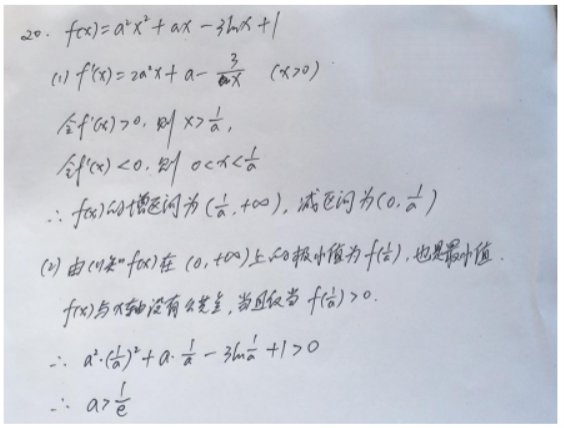 20. f(x)=a²x²+ax-3lnx+1
(1) f'(x)=2a²x+a-3/x (x>0)
令f'(x)>0,则 x>1/a,
令f'(x)<0,则 0<x<1/a
∴ f(x)的增区间为(1/a,+∞),减区间为(0,1/a)
(2) 由(1)知f(x)在(0,+∞)上的极小值为f(1/a),也是最小值.
f(x)与x轴没有公共点,当且仅当 f(1/a)>0.
∴ a²·(1/a)²+a·1/a-3ln1/a+1>0
∴ a>1/e